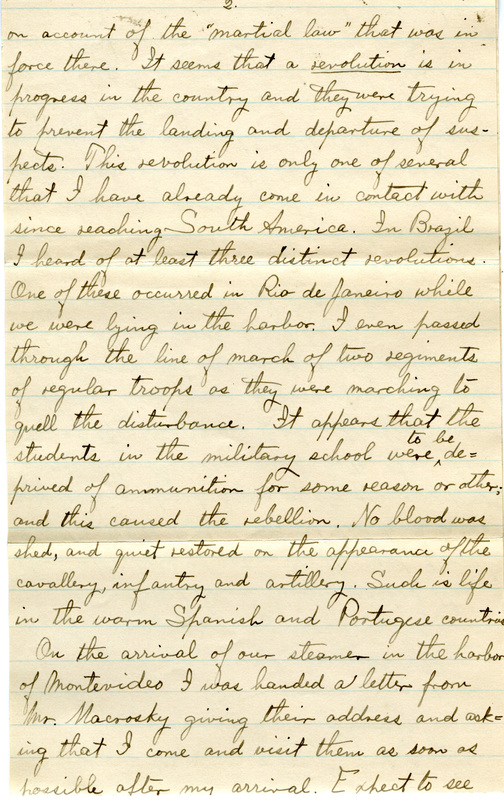 2.
on account of the "martial law" that was in
force there. It seems that a revolution is in
progress in the country and they were trying
to prevent the landing and departure of sus-
pects. This revolution is only one of several
that I have already come in contact with
since reaching South America. In Brazil
I heard of at least three distinct revolutions.
One of these occurred in Rio de Janeiro while
we were lying in the harbor. I even passed
through the line of march of two regiments
of regular troops as they were marching to
quell the disturbance. It appears that the
students in the military school were to be de=
prived of ammunition for some reason or other;
and this caused the rebellion. No blood was
shed, and quiet restored on the appearance of the
cavallery, infantry and artillery. Such is life
in the warm Spanish and Portugese countries
On the arrival of our steamer in the harbor
of Montevideo I was handed a letter from
Mr. Macrosky giving their address and ask=
ing that I come and visit them as soon as
possible after my arrival. Expect to see